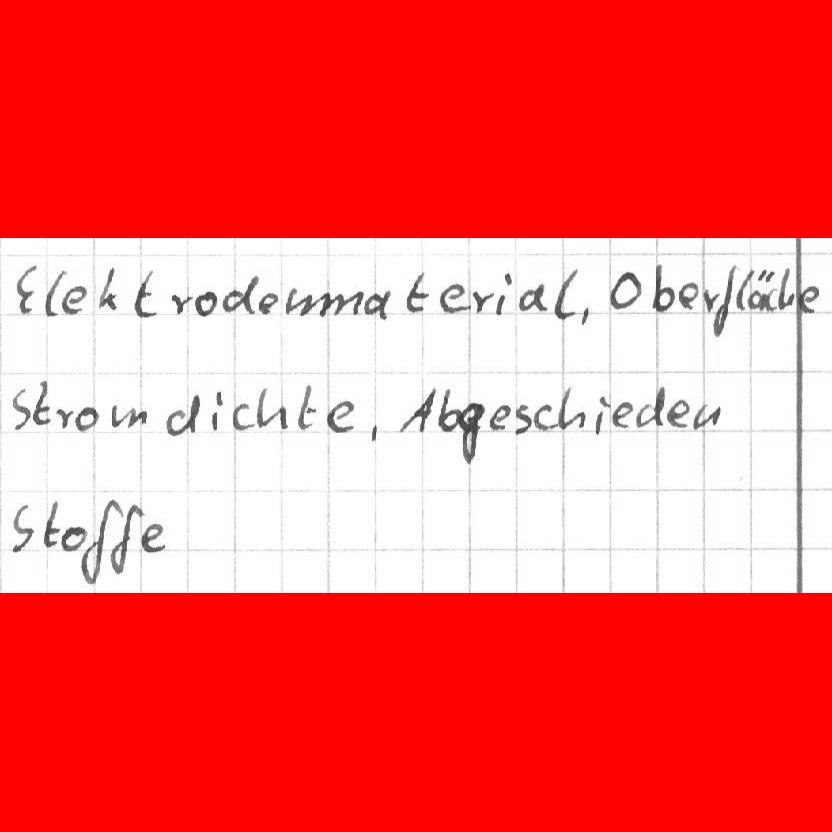 Elektrodenmaterial, Oberfläche
Stromdichte, Abgeschieden
Stoffe